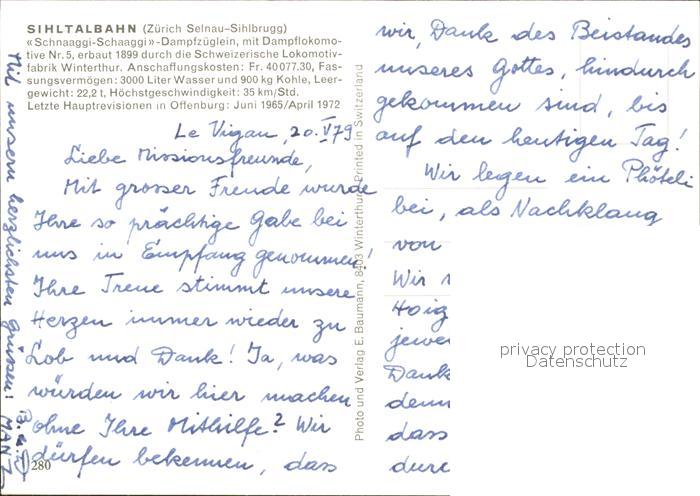 SIHLTALBAHN (Zürich Selnau–Sihlbrugg)
«Schnaaggi-Schaaggi»-Dampfzüglein, mit Dampflokomo-
tive Nr. 5, erbaut 1899 durch die Schweizerische Lokomotiv-
fabrik Winterthur. Anschaffungskosten: Fr. 40 077.30, Fas-
sungsvermögen: 3000 Liter Wasser und 900 kg Kohle, Leer-
gewicht: 22,2 t, Höchstgeschwindigkeit: 35 km/Std.
Letzte Hauptrevisionen in Offenburg: Juni 1965/April 1972
Le Vigan, 20. V 79
Liebe Missionsfreunde,
Mit grosser Freude wurde
Ihre so prächtige Gabe bei
uns in Empfang genommen!
Ihre Treue stimmt unsere
Herzen immer wieder zu
Lob und Dank! Ja, was
würden wir hier machen
ohne Ihre Mithilfe? Wir
dürfen bekennen, dass
280
wir, Dank des Beistandes
unseres Gottes, hindurch
gekommen sind, bis
auf den heutigen Tag!
Wir legen ein Phöteli
bei, als Nachklang
von
Wir
Hoig
jewei
Dank
denn
dass
durc
Mit unsern herzlichsten Grüssen!
MANZ
Photo und Verlag E. Baumann, 8403 Winterthur Printed in Switzerland
privacy protection
Datenschutz